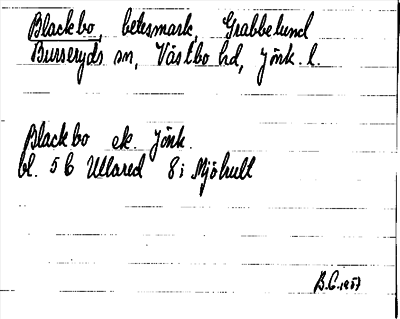 Blackbo, betesmark, Grabbelund
Burseryds sn, Västbo hd, Jönk. l.
Blackbo ek. Jönk.
bl. 5 6 Ullared 8 i Mjöhult
B.G. 1957